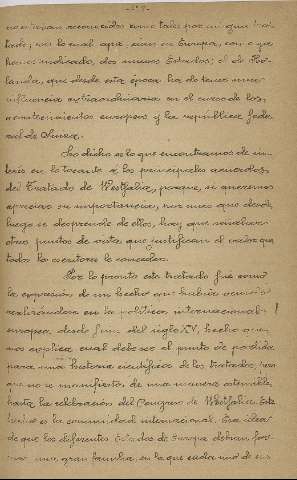 no existían reconocidos como tales por ningun tra-
tado, por lo cual aparecían en Europa, con
hemos indicado, dos nuevos Estados; el de Ho-
landa, que desde esta época ha de tener una
influencia extraordinaria en el curso de los
acontecimientos europeos y la república fede
ral de Suiza.
Lo dicho es lo que encontramos de in-
terés en lo tocante á los principales acuerdos
del Tratado de Westfalia, porque, si queremos
apreciar su importancia, por mas que desde
luego se desprende de ellos, hay que señalar
otros puntos de vista que justifican el valor que
todos los escritores le conceden.
Por lo pronto este tratado fué como
la expresión de un hecho que había venido
realizándose en la política internacional
europea, desde fines del siglo XV, hecho que
nos explica cual debe ser el punto de partida
para una historia científica de los tratados, pero
que no se manifiesta, de una manera ostensible,
hasta la celebración del Congreso de Westfalia. Este
hecho es la comunidad internacional. Esa idea
de que los diferentes Estados de Europa debían for-
mar una gran familia, en la que cada uno de sus